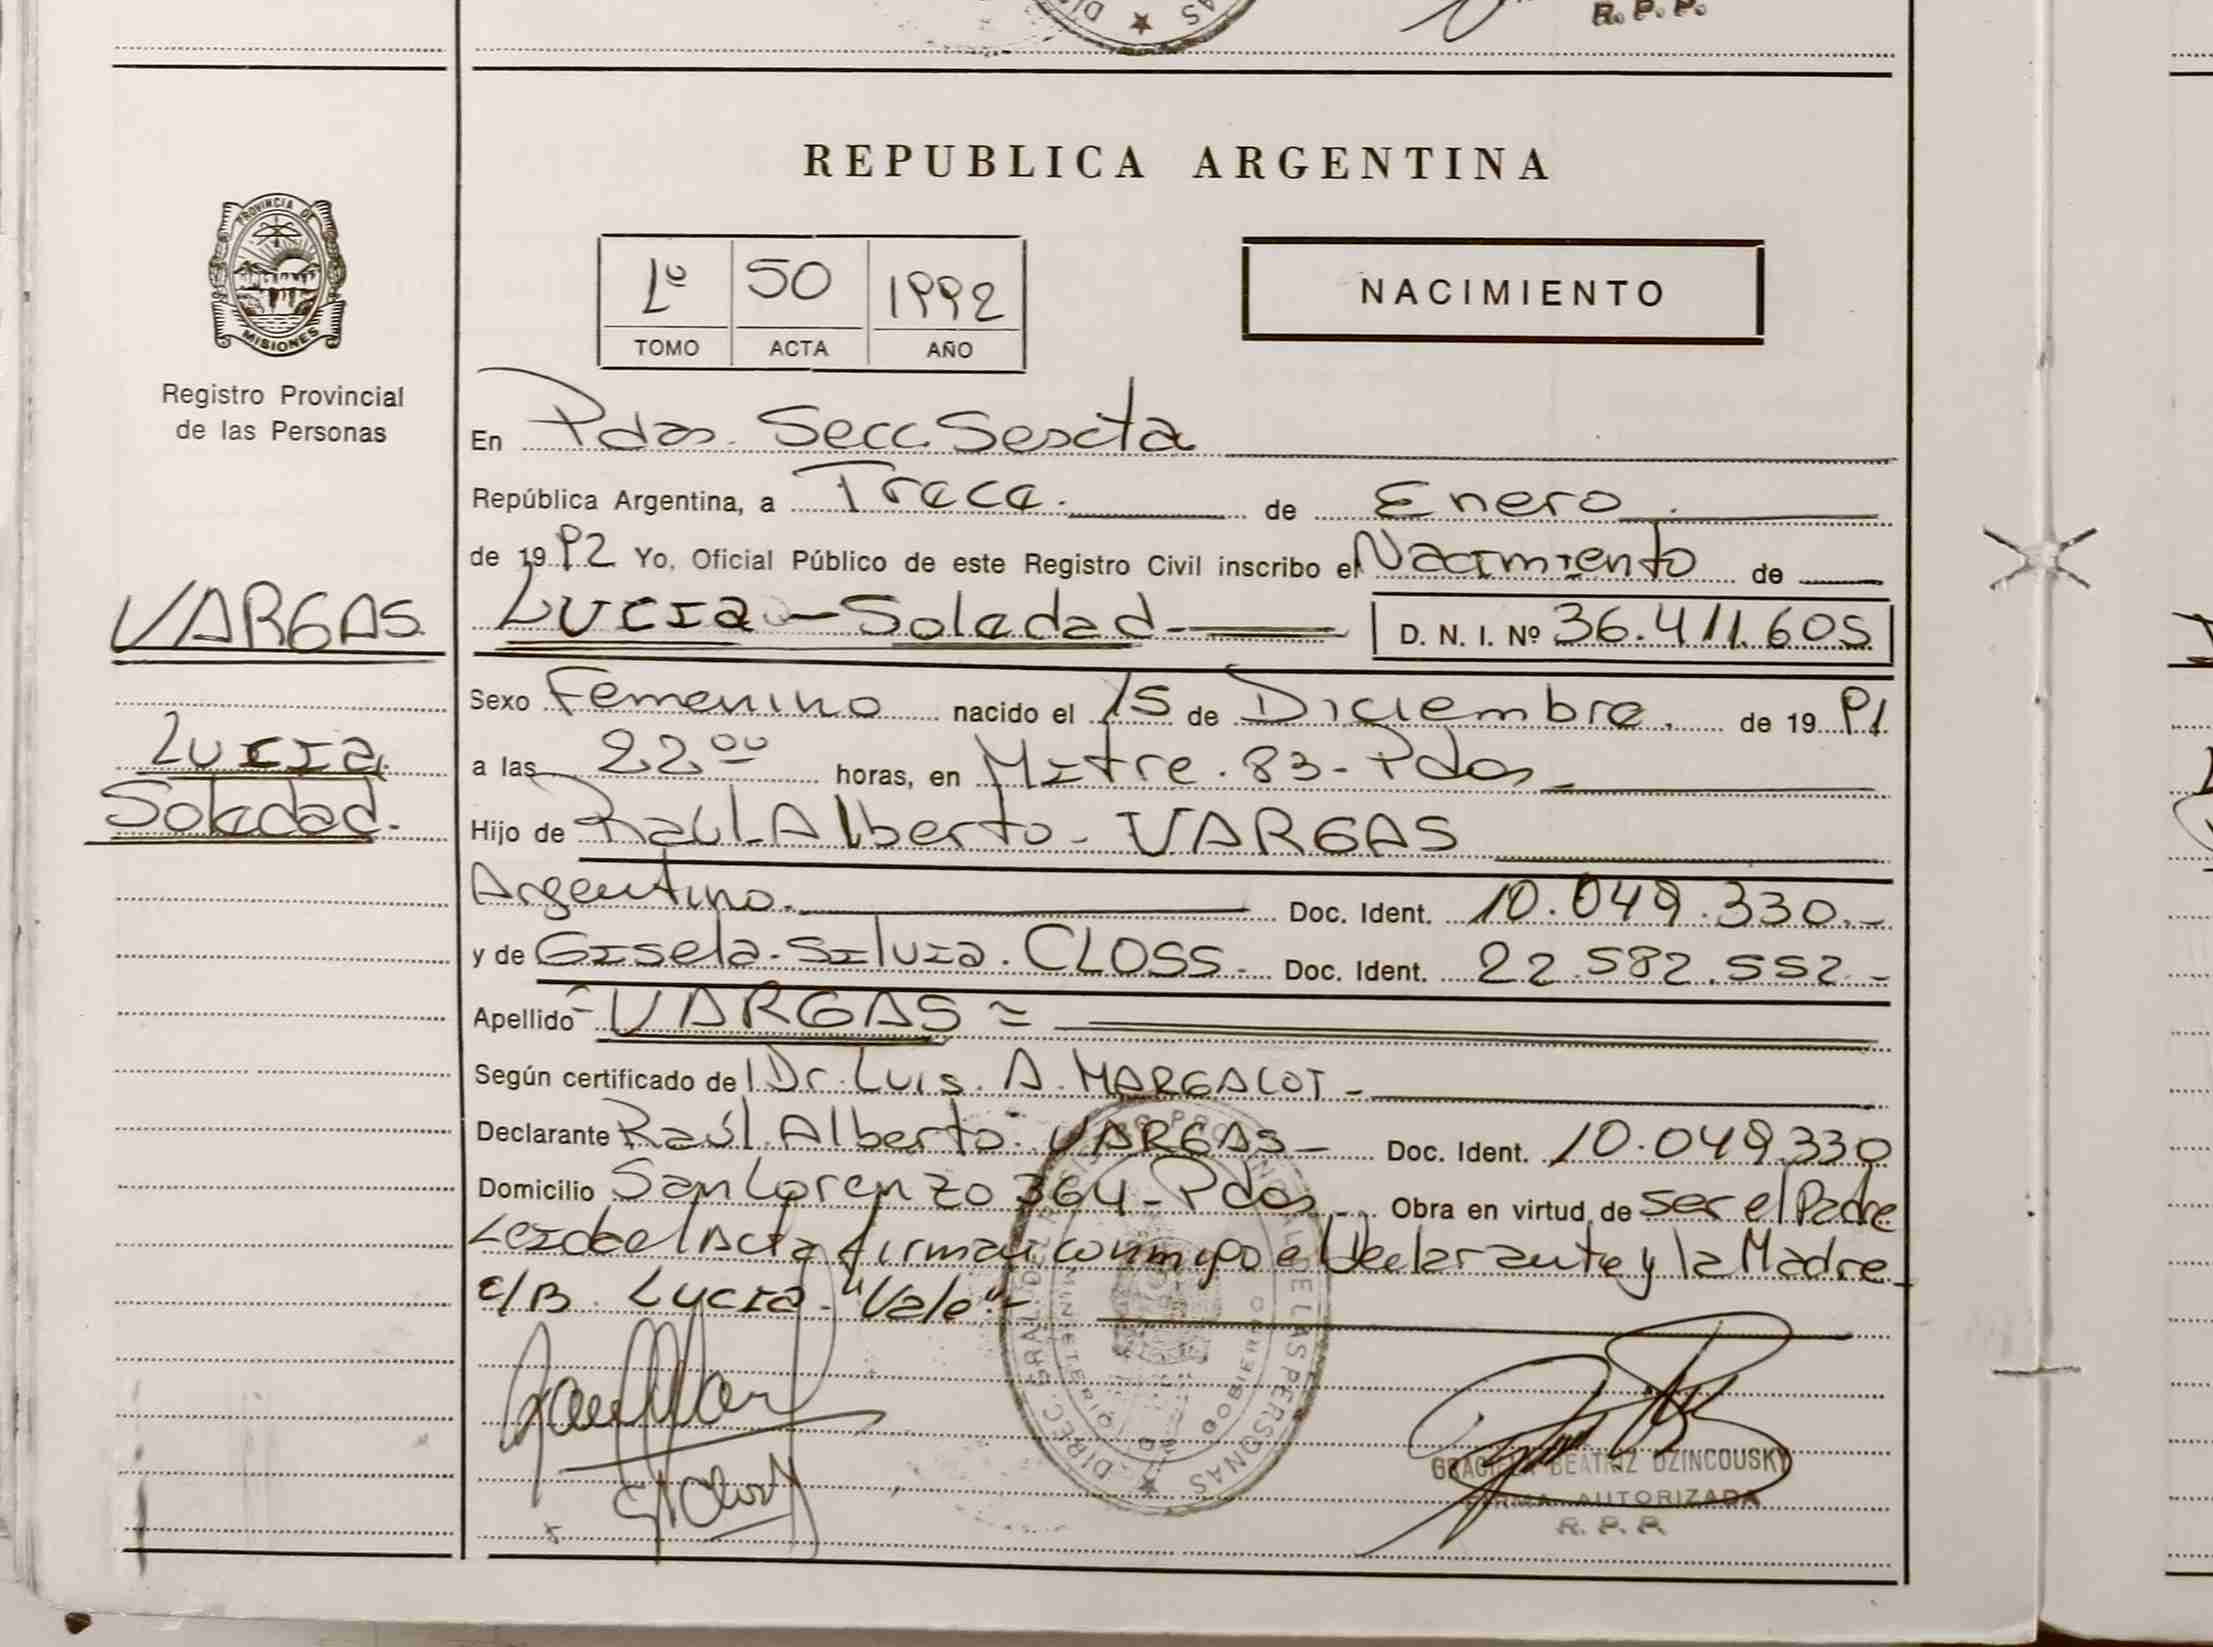 R. P. P.
REPUBLICA ARGENTINA
PROVINCIA DE
MISIONES
Registro Provincial
de las Personas
1º 50 1992
TOMO ACTA AÑO
NACIMIENTO
En Pdas. Secc. Sexta
República Argentina, a Trece. de Enero.
de 1992 Yo, Oficial Público de este Registro Civil inscribo el Nacimiento de
VARGAS
LUCIA - Soledad D. N. I. Nº 36.411.605
Sexo Femenino nacido el 15 de Diciembre. de 1991
Lucia
Soledad.
a las 22 00 horas, en Mitre. 83 - Pdas
Hijo de Raúl. Alberto - VARGAS
Argentino. Doc. Ident. 10.049.330.-
y de Gisela. Silvia. CLOSS. Doc. Ident. 22.582.552.-
Apellido VARGAS =
Según certificado del Dr. Luis. A. MARGALOT -
Declarante Raúl. Alberto. VARGAS - Doc. Ident. 10.049.330
Domicilio San Lorenzo 364 - Pdas Obra en virtud de ser el Padre
Leida el Acta firman conmigo el Declarante y la Madre
e/B. Lucia. "Vale".-
DIREC. GRAL. DEL REGISTRO PROVINCIAL DE LAS PERSONAS
MINISTERIO DE GOBIERNO
GRACIELA BEATRIZ DZINCOUSKY
FIRMA AUTORIZADA
R. P. P.